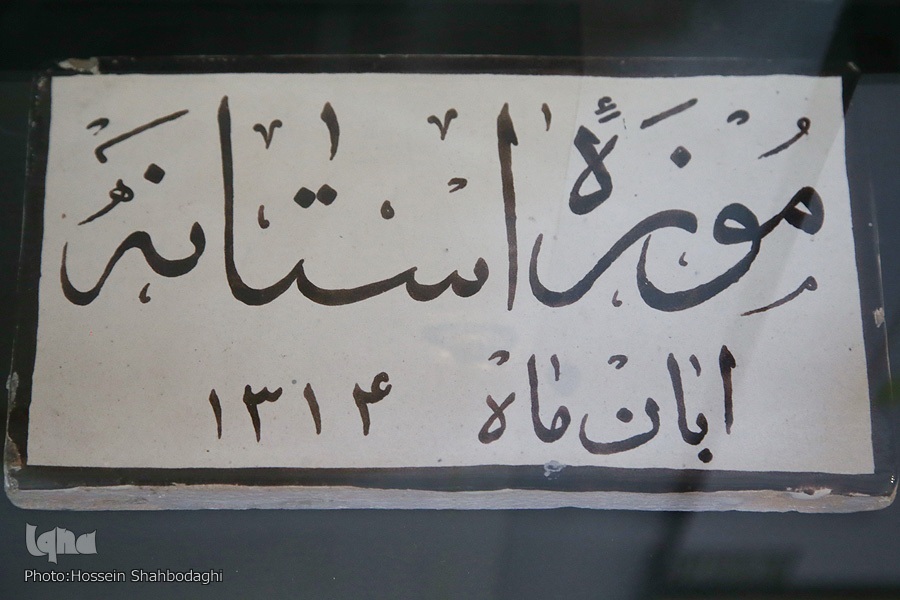 موزهٔ آستانه
آبان ماه ۱۳۱۴
Iqna
Photo:Hossein Shahbodaghi